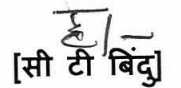 ह/-
[सी टी बिंदु]